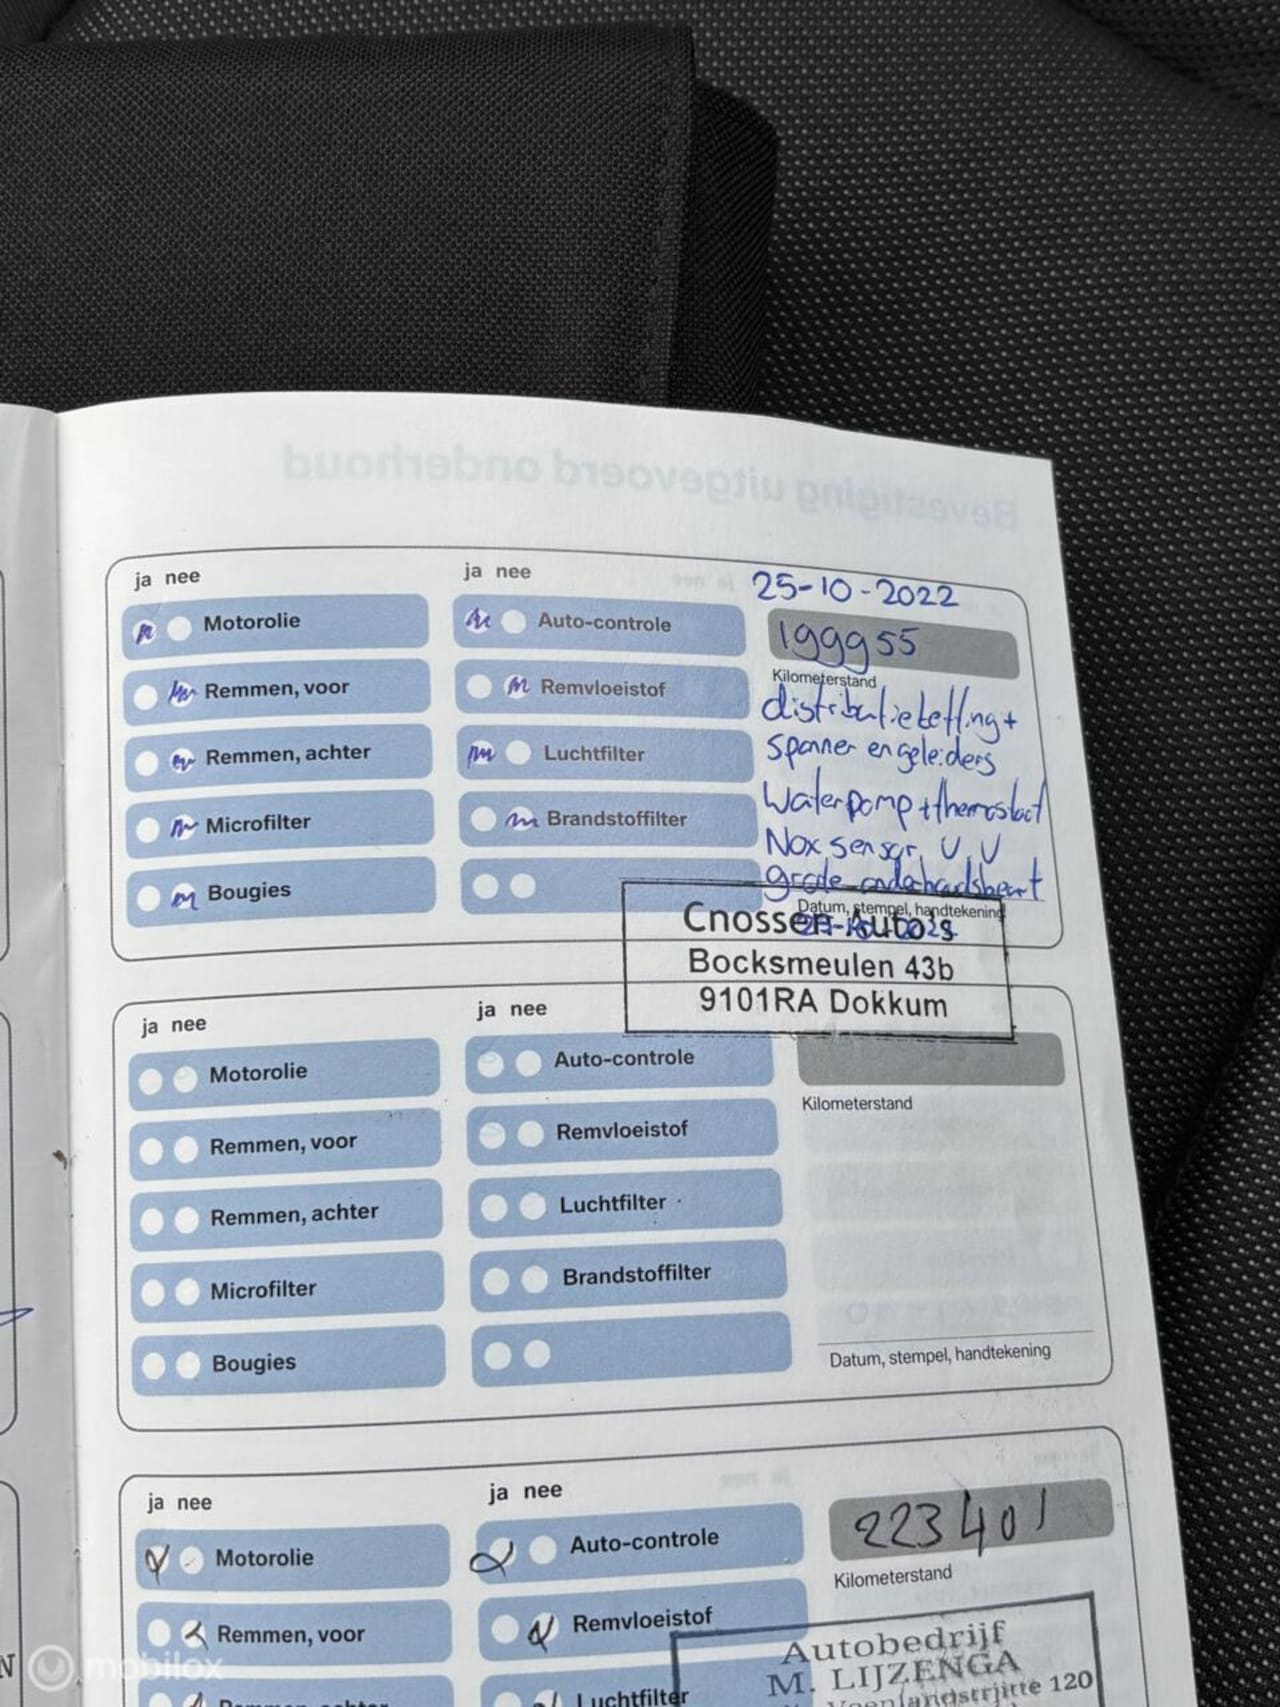 Bevestiging uitgevoerd onderhoud
ja nee
ja nee
25-10-2022
Motorolie
Auto-controle
199955
Kilometerstand
Remmen, voor
Remvloeistof
distributieketting +
Remmen, achter
Luchtfilter
Spanner en geleiders
Microfilter
Brandstoffilter
Waterpomp + thermostaat
Nox sensor, V, V
Bougies
grote onderhoudsbeurt
Datum, stempel, handtekening
Cnossen Auto's
Bocksmeulen 43b
9101RA Dokkum
ja nee
ja nee
Motorolie
Auto-controle
Kilometerstand
Remmen, voor
Remvloeistof
Remmen, achter
Luchtfilter
Microfilter
Brandstoffilter
Bougies
Datum, stempel, handtekening
ja nee
ja nee
Motorolie
Auto-controle
223401
Kilometerstand
Remmen, voor
Remvloeistof
Autobedrijf
M. LIJZENGA
120
Remmen, achter
Luchtfilter
mobilox